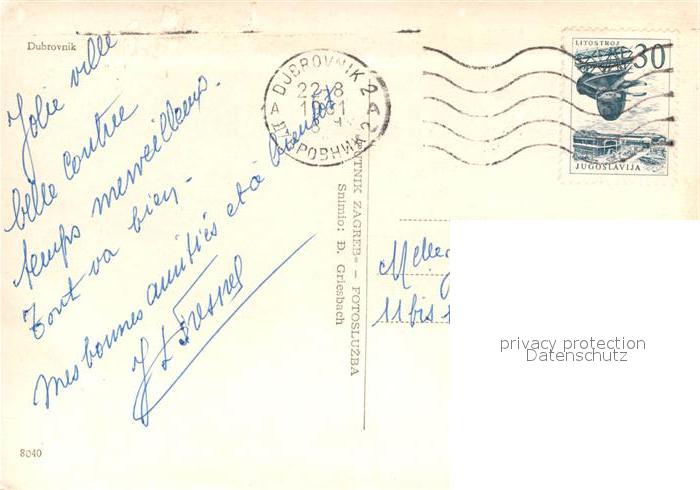 Dubrovnik
Jolie ville
belle contrée
temps merveilleux.
Tout va bien.
Mes bonnes amitiés et à bientôt
8040
DUBROVNIK 2
22-8
1961
ДУБРОВНИК 2
LITOSTROJ
30
JUGOSLAVIJA
PUTNIK ZAGREB« – FOTOSLUŽBA
Snimio: Đ. Griesbach
11 bis
privacy protection
Datenschutz